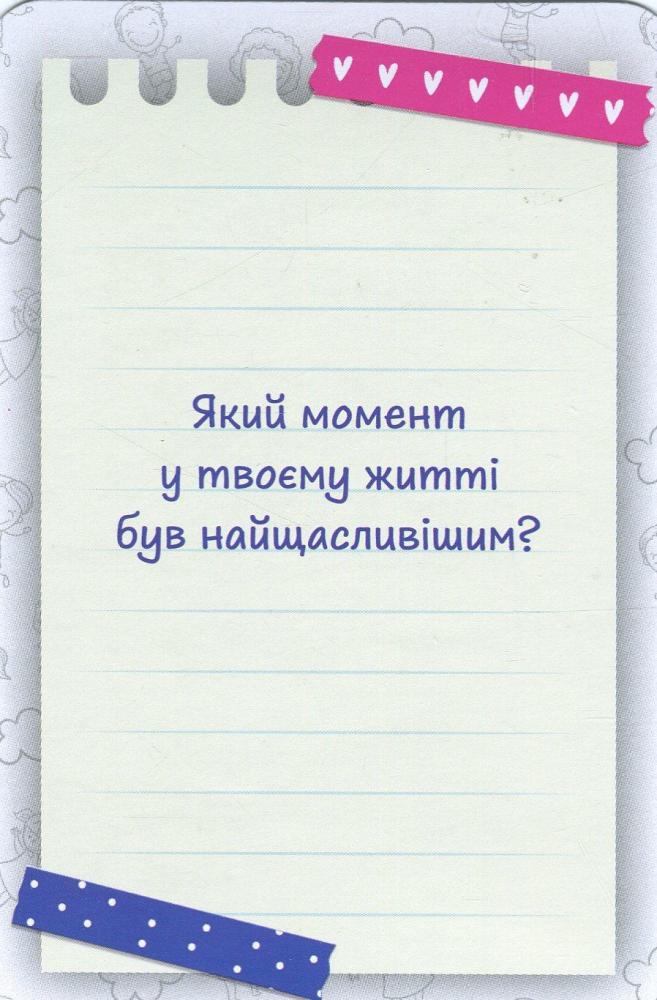 Який момент
у твоєму житті
був найщасливішим?